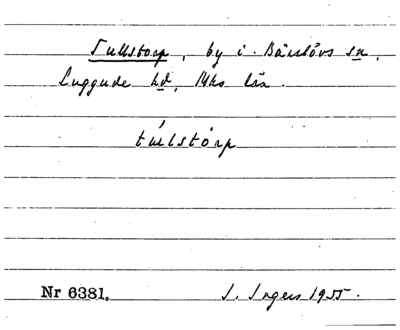 Tullstorp, by i Bårslövs sn,
Luggude hd, Mhs län.
túlstòrp
Nr 6381. I. Ingers 1955.